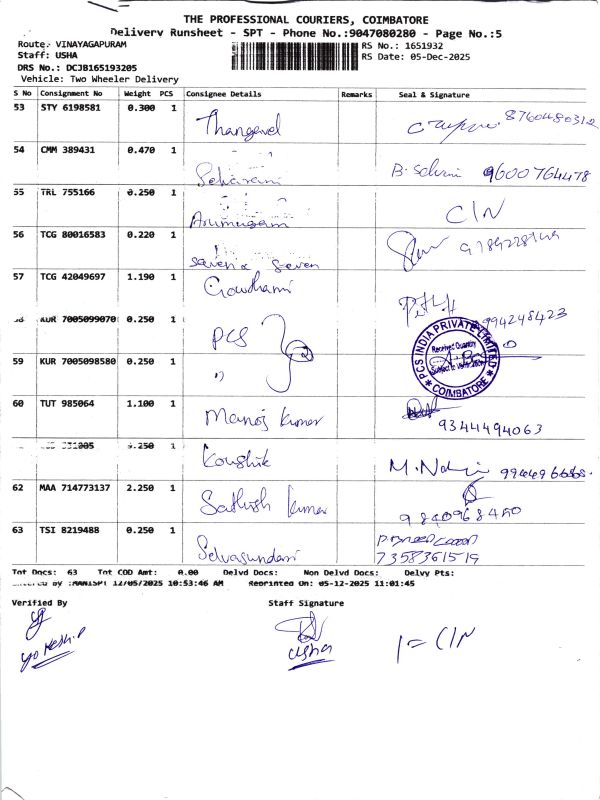 THE PROFESSIONAL COURIERS, COIMBATORE
Delivery Runsheet - SPT - Phone No.:9047080280 - Page No.:5
Route: VINAYAGAPURAM
RS No.: 1651932
Staff: USHA
RS Date: 05-Dec-2025
DRS No.: DCJB165193205
Vehicle: Two Wheeler Delivery
S No Consignment No Weight PCS Consignee Details Remarks Seal & Signature
53 STY 6198581 0.300 1 Thangavel 8760480312
54 CMM 389431 0.470 1 B. Selvi 9600764478
55 TRL 755166 0.250 1 Arumugam C/N
56 TCG 80016583 0.220 1 seven & seven
57 TCG 42049697 1.190 1 Gowdhami 994248423
KUR 7005099070 0.250 1 PCS
59 KUR 7005098580 0.250 1 "
PCS INDIA PRIVATE LIMITED
Received Quantity
Subject to Verification
COIMBATORE
60 TUT 985064 1.100 1 Manoj kumar 9344494063
1 Koushik
62 MAA 714773137 2.250 1 Sathish kumar 9840968450
63 TSI 8219488 0.250 1 Selvasundari 7358361519
Tot Docs: 63 Tot COD Amt: 0.00 Delvd Docs: Non Delvd Docs: Delvy Pts:
Entered By :MANISPT 12/05/2025 10:53:46 AM Reprinted On: 05-12-2025 11:01:45
Verified By
Staff Signature
usha
1 = C/N